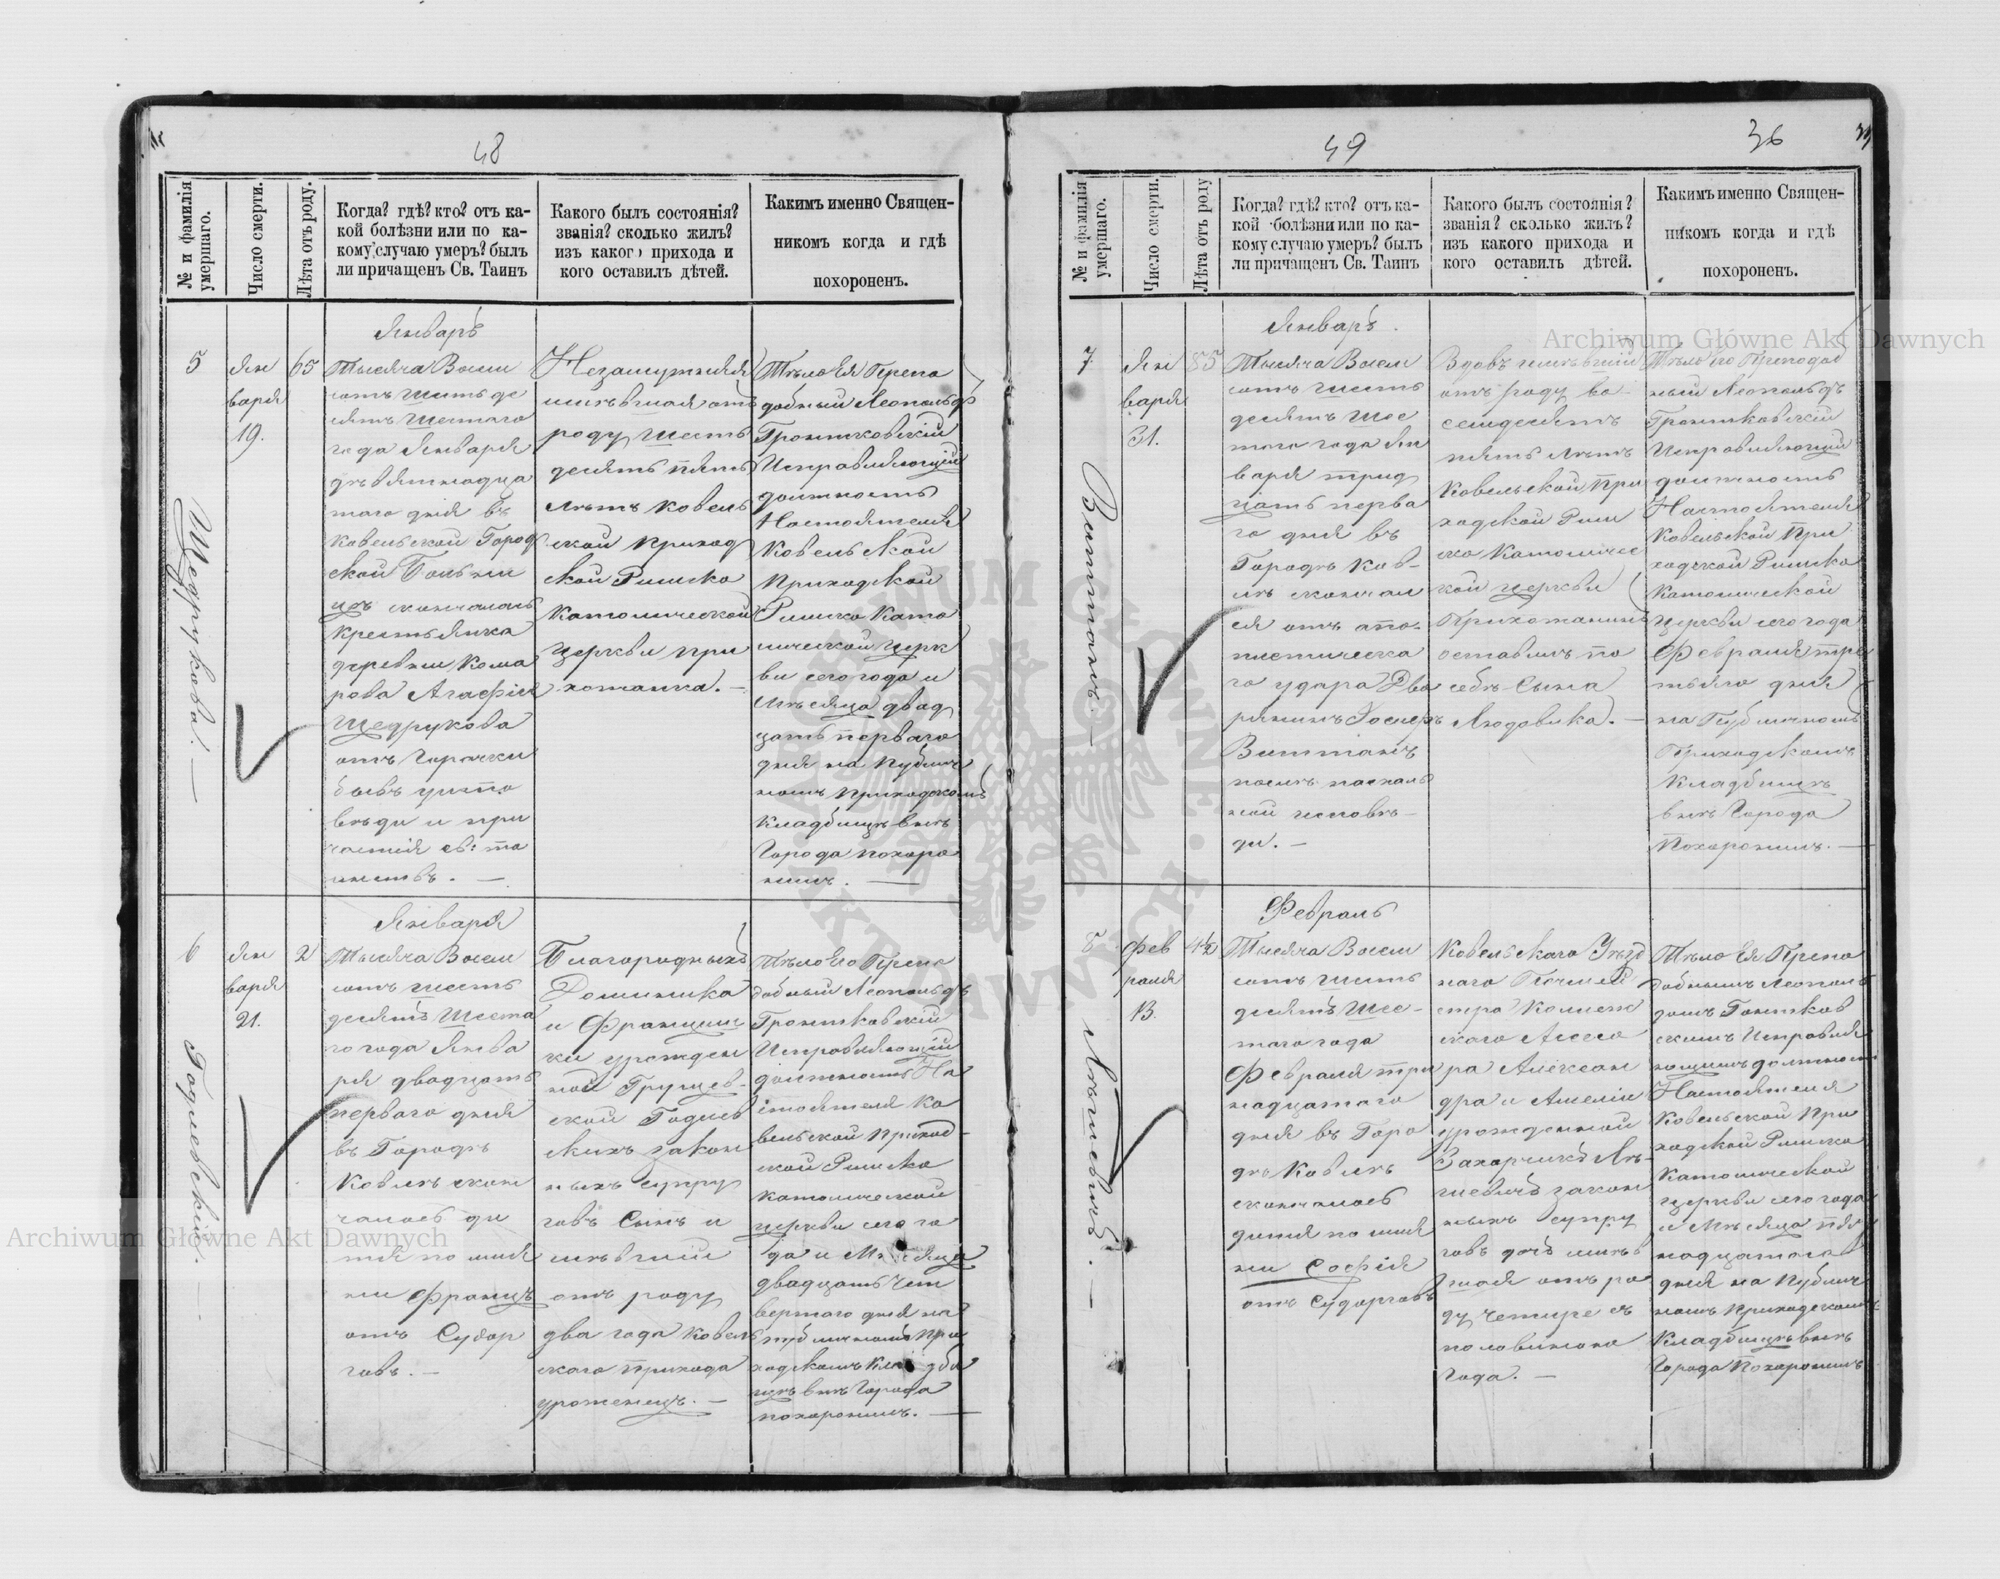 48
№ и фамилія умершаго.
Число смерти.
Лѣта отъ роду.
Когда? гдѣ? кто? отъ ка-
кой болѣзни или по ка-
кому случаю умеръ? былъ
ли причащенъ Св. Таинъ
Какого былъ состоянія?
званія? сколько жилъ?
изъ какого прихода и
кого оставилъ дѣтей.
Какимъ именно Священ-
никомъ когда и гдѣ
похороненъ.
5
Щедрукова. —
Ян
варя
19.
65
Январь
Тысяча Восем
сотъ шестьде
сятъ шестаго
года Января
дѣвятнадца
таго дня въ
Ковельской Город
ской Больни
цѣ скончалась
Крестьянка
деревни Кома
рова Агафія
Щедрукова
отъ Горячки
бывъ у испо
вѣди и при
частія св: та
инствъ. —
Незамужняя
имѣвшая отъ
роду шесть
десятъ пять
лѣтъ Ковель
ской Приход
ской Римско
Католической
церкви при
хожанка. —
Тѣло Ея Препо
добный Леопольдъ
Гронтковскій
Исправляющій
должность
Настоятеля
Ковельской
Приходской
Римско Като
лической Церк
ви сего года и
Мѣсяца двад
цать перваго
дня на Публич
номъ Приходскомъ
Кладбищѣ внѣ
Города похоро
нилъ. —
6
Годлевскій. —
Ян
варя
21.
2
Января
Тысяча Восем
сотъ шесть
десятъ Шеста
го года Янва
ря двадцать
перваго дня
въ Городѣ
Ковелѣ скон
чалось ди
тя по имя
ни Францъ
отъ Судор
говъ. —
Благородныхъ
Доминика
и Франциш
ки урожден
ной Грущев-
ской Годлев
скихъ закон
ныхъ супру
говъ Сынъ и
мѣвшій
отъ роду
два года Ковель
скаго прихода
уроженецъ. —
Тѣло Его Препо
добный Леопольдъ
Гронтковскій
Исправляющій
должность На
стоятеля Ко
вельской Приход
ской Римско
Католической
церкви сего го
да и Мѣсяца
двадцать чет
вертаго дня на
публичномъ При
ходскомъ Кладби
щѣ внѣ Города
похоронилъ. —
49
36
№ и фамилія умершаго.
Число смерти.
Лѣта отъ роду
Когда? гдѣ? кто? отъ ка-
кой болѣзни или по ка-
кому случаю умеръ? былъ
ли причащенъ Св. Таинъ
Какого былъ состоянія?
званія? сколько жилъ?
изъ какого прихода и
кого оставилъ дѣтей.
Какимъ именно Священ-
никомъ когда и гдѣ
похороненъ.
7
Виттанъ —
Ян
варя
31.
85
Январь.
Тысяча Восем
сотъ шесть
десятъ Шес
таго года Ян
варя трид
цать перва
го дня въ
Городѣ Ков-
лѣ скончал
ся отъ апо-
плетическа
го удара Дво
рянинъ
Виттанъ
послѣ пасхаль
ной исповѣ-
ди. —
Вдовъ имѣвшій
отъ роду во-
семдесятъ
пять лѣтъ
Ковельской При
ходской Рим
ско Католичес
кой церкви
Прихожанинъ
оставилъ по
себѣ Сына
Людовика. —
Тѣло Его Преподоб
ный Леопольдъ
Гронтковскій
Исправляющій
должность
Настоятеля
Ковельской При
ходской Римско
Католической
Церкви сего года
Февраля тре
тьяго дня
на Публичномъ
Приходскомъ
Кладбищѣ
внѣ Города
Похоронилъ. —
8
Фев
раля
13.
4½
Февраль
Тысяча Восем
сотъ шесть
десятъ Шес-
таго года
Февраля три
надцатаго
дня въ Горо
дѣ Ковлѣ
скончалось
дитя по имя
ни Софія
отъ Судорговъ
Ковельскаго Уѣзд
наго Почмей
стра Коллеж
скаго Асесо
ра Алексан
дра и Амеліи
урожденной
закон
ныхъ супру
говъ дочь имѣв
шая отъ ро
ду четыре съ
половиною
года. —
Тѣло Ея Препо
добнымъ Леополь
домъ Гонтков
скимъ Исправля
ющимъ должность
Настоятеля
Ковельской При
ходской Римско
Католической
церкви сего года
и Мѣсяца пят
надцатаго
дня на Публич
номъ Приходскомъ
Кладбищѣ внѣ
Города Похоронилъ
Archiwum Główne Akt Dawnych
Archiwum Główne Akt Dawnych